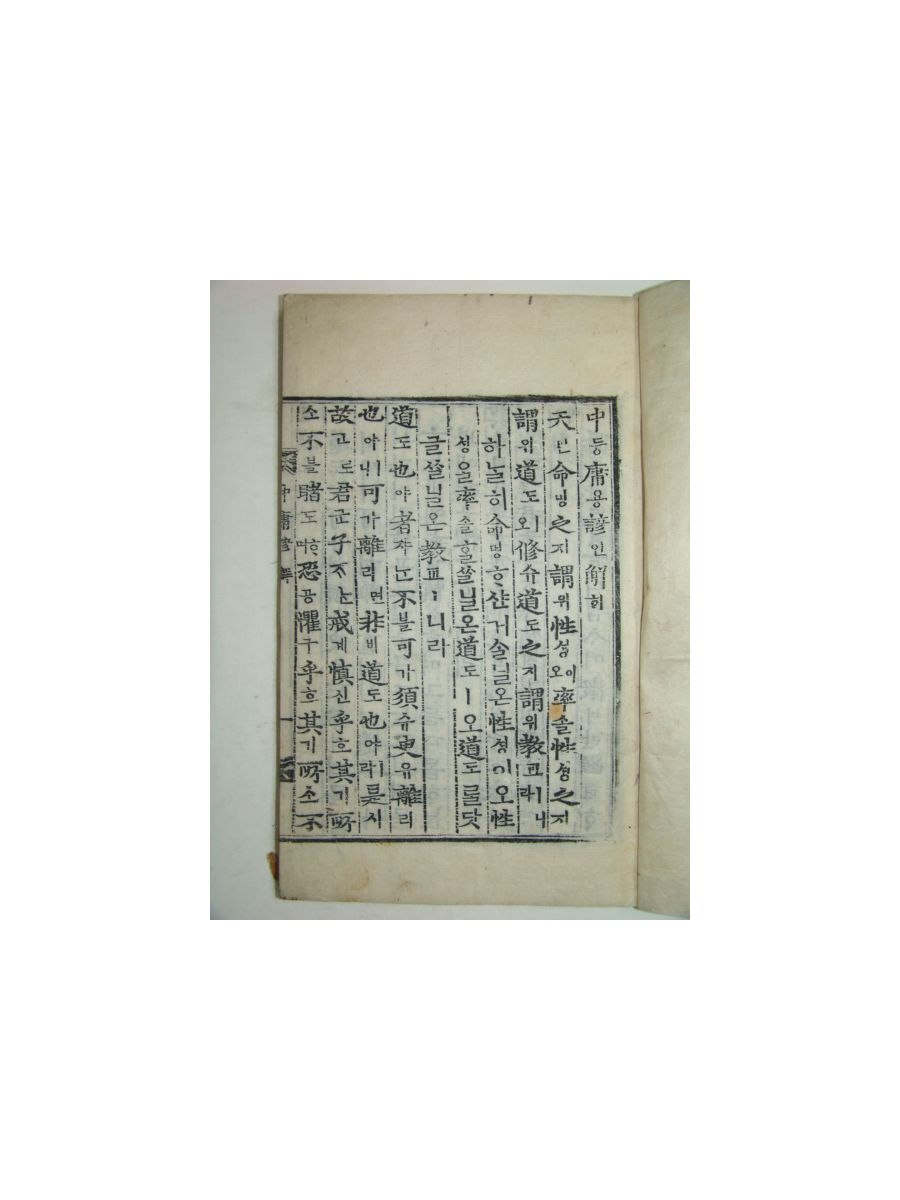 中듕庸용諺언解ᄒᆡ
天텬命명之지謂위性셩이오率솔性셩之지
謂위道도ㅣ오修슈道도之지謂위敎교ㅣ니라
하ᄂᆞᆯ히命명ᄒᆞ샨거슬닐온性셩이오性
셩을率솔ᄒᆞᆯᄊᆞᆯ닐온道도ㅣ오道도ᄅᆞᆯ닷
글ᄊᆞᆯ닐온敎교ㅣ니라
道도也야者쟈ᄂᆞᆫ不블可가須슈臾유離리
也야ㅣ니可가離리면非비道도也야ㅣ라是시
故고로君군子ᄌᆞᄂᆞᆫ戒계愼신乎호其기所
소不블睹도ᄒᆞ며恐공懼구乎호其기所소不
中庸諺解
一